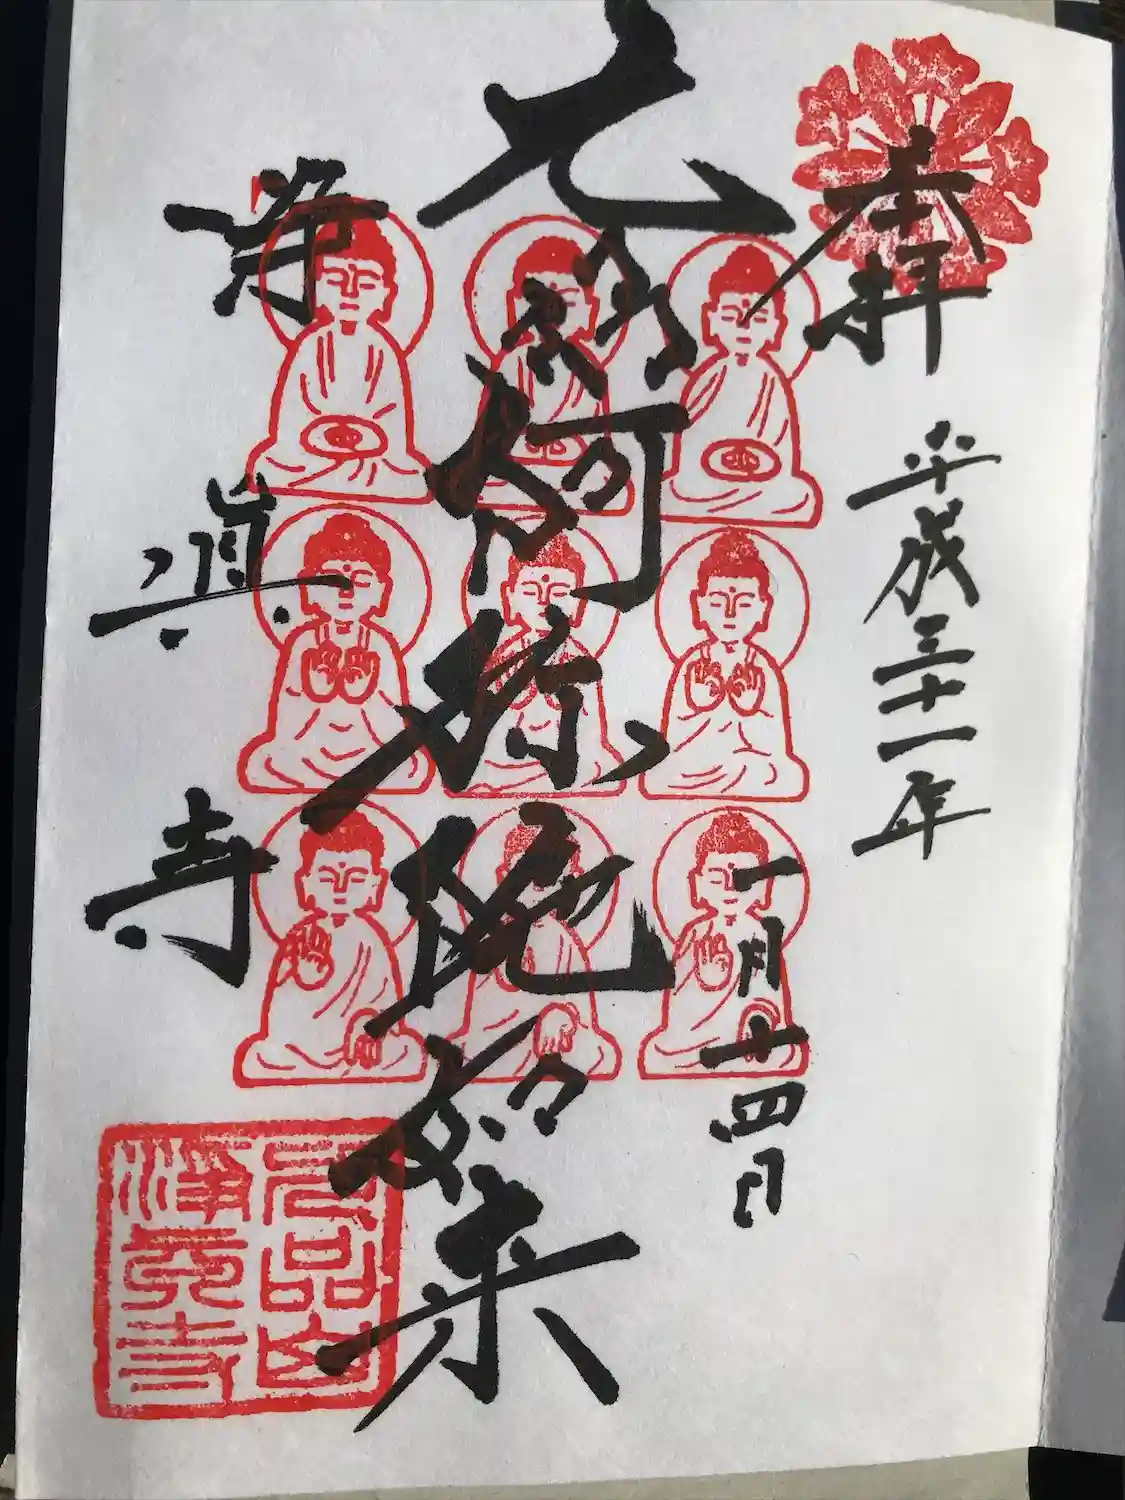 奉拝
平成三十一年
一月十四日
九体阿弥陀如来
浄真寺
九品山
浄真寺